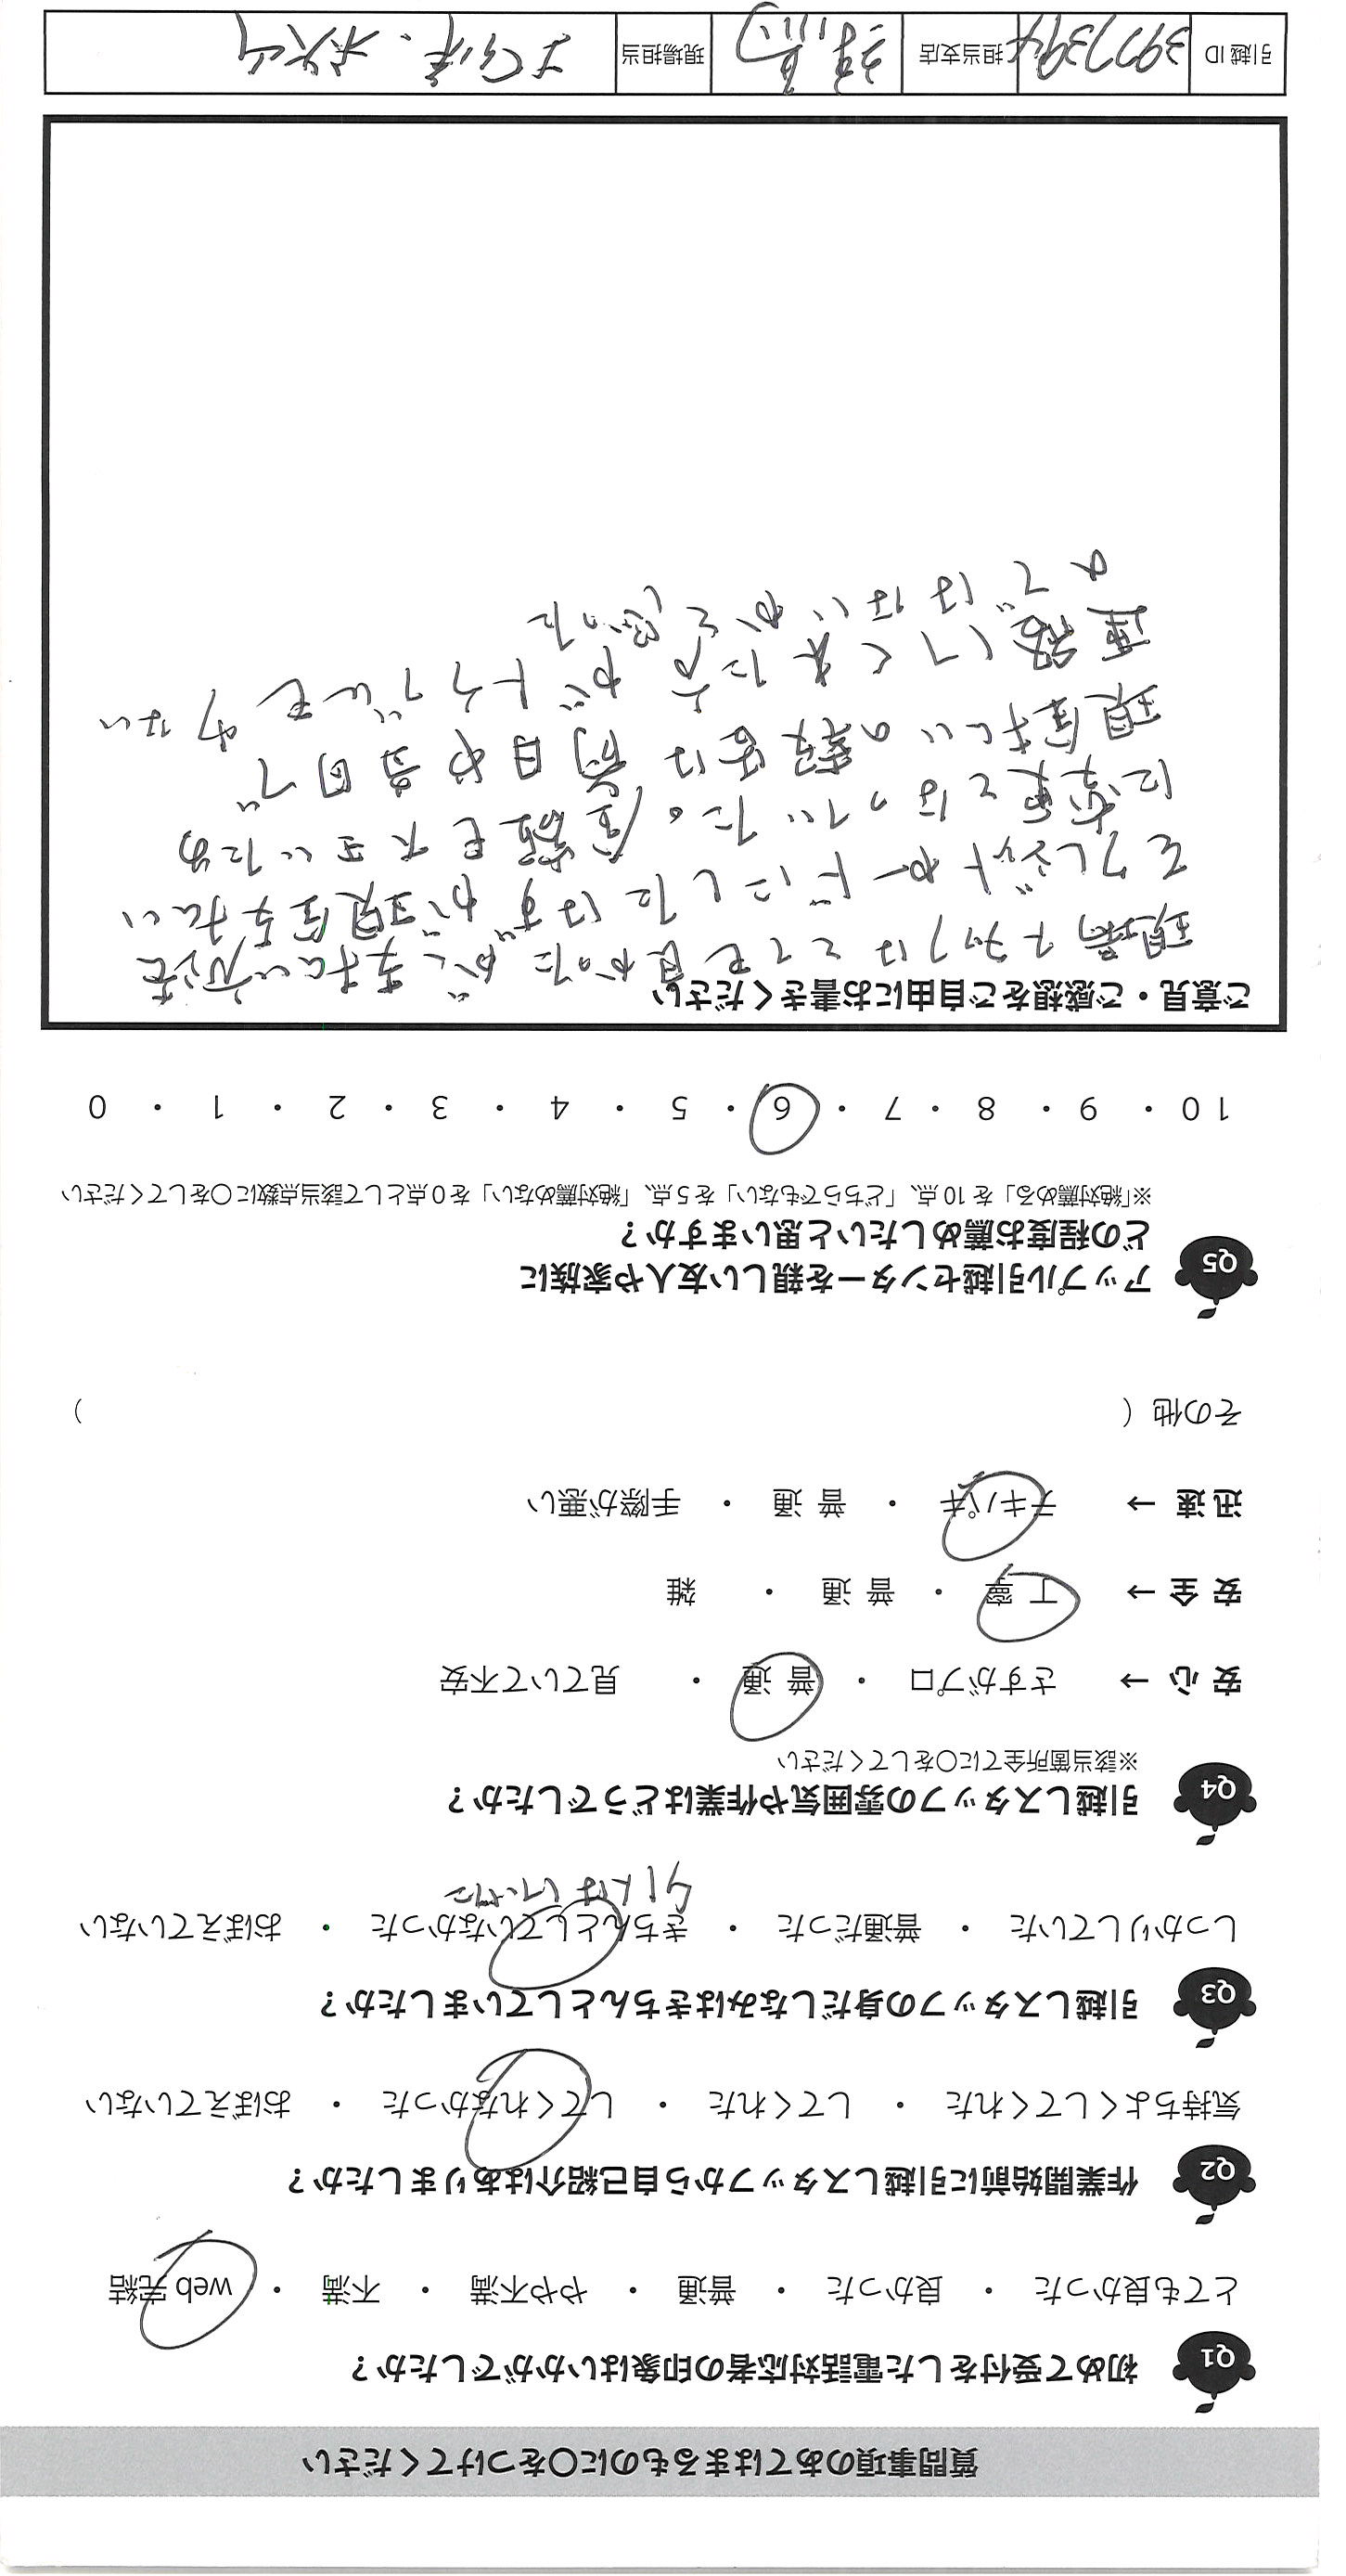 質問事項のあてはまるものに○をつけてください
Q1 初めて受付をした電話対応者の印象はいかがでしたか？
とても良かった ・ 良かった ・ 普通 ・ やや不満 ・ 不満 ・ web 完結
Q2 作業開始前に引越しスタッフから自己紹介はありましたか？
気持ちよくしてくれた ・ してくれた ・ してくれなかった ・ おぼえていない
Q3 引越しスタッフの身だしなみはきちんとしていましたか？
しっかりしていた ・ 普通だった ・ きちんとしていなかった ・ おぼえていない
Q4 引越しスタッフの雰囲気や作業はどうでしたか？
※該当箇所全てに○をしてください
安心→ さすがプロ ・ 普通 ・ 見ていて不安
安全→ 丁寧 ・ 普通 ・ 雑
迅速→ テキパキ ・ 普通 ・ 手際が悪い
その他（ ）
Q5 アップル引越センターを親しい友人や家族に
どの程度お薦めしたいと思いますか？
※「絶対薦める」を10点、「どちらでもない」を5点、「絶対薦めない」を0点として該当点数に○をしてください
10 ・ 9 ・ 8 ・ 7 ・ 6 ・ 5 ・ 4 ・ 3 ・ 2 ・ 1 ・ 0
ご意見・ご感想をご自由にお書きください
現場スタッフはとても良かったが、支払い方法を
クレジットカードにしたはずが現金支払い
に変更となっていた。金額も大きいため
現金払いの報告は前日や当日で
連絡してくれた方がトラブルも少ない
のではないかと思った
引越ID 3977394 担当支店 現場担当